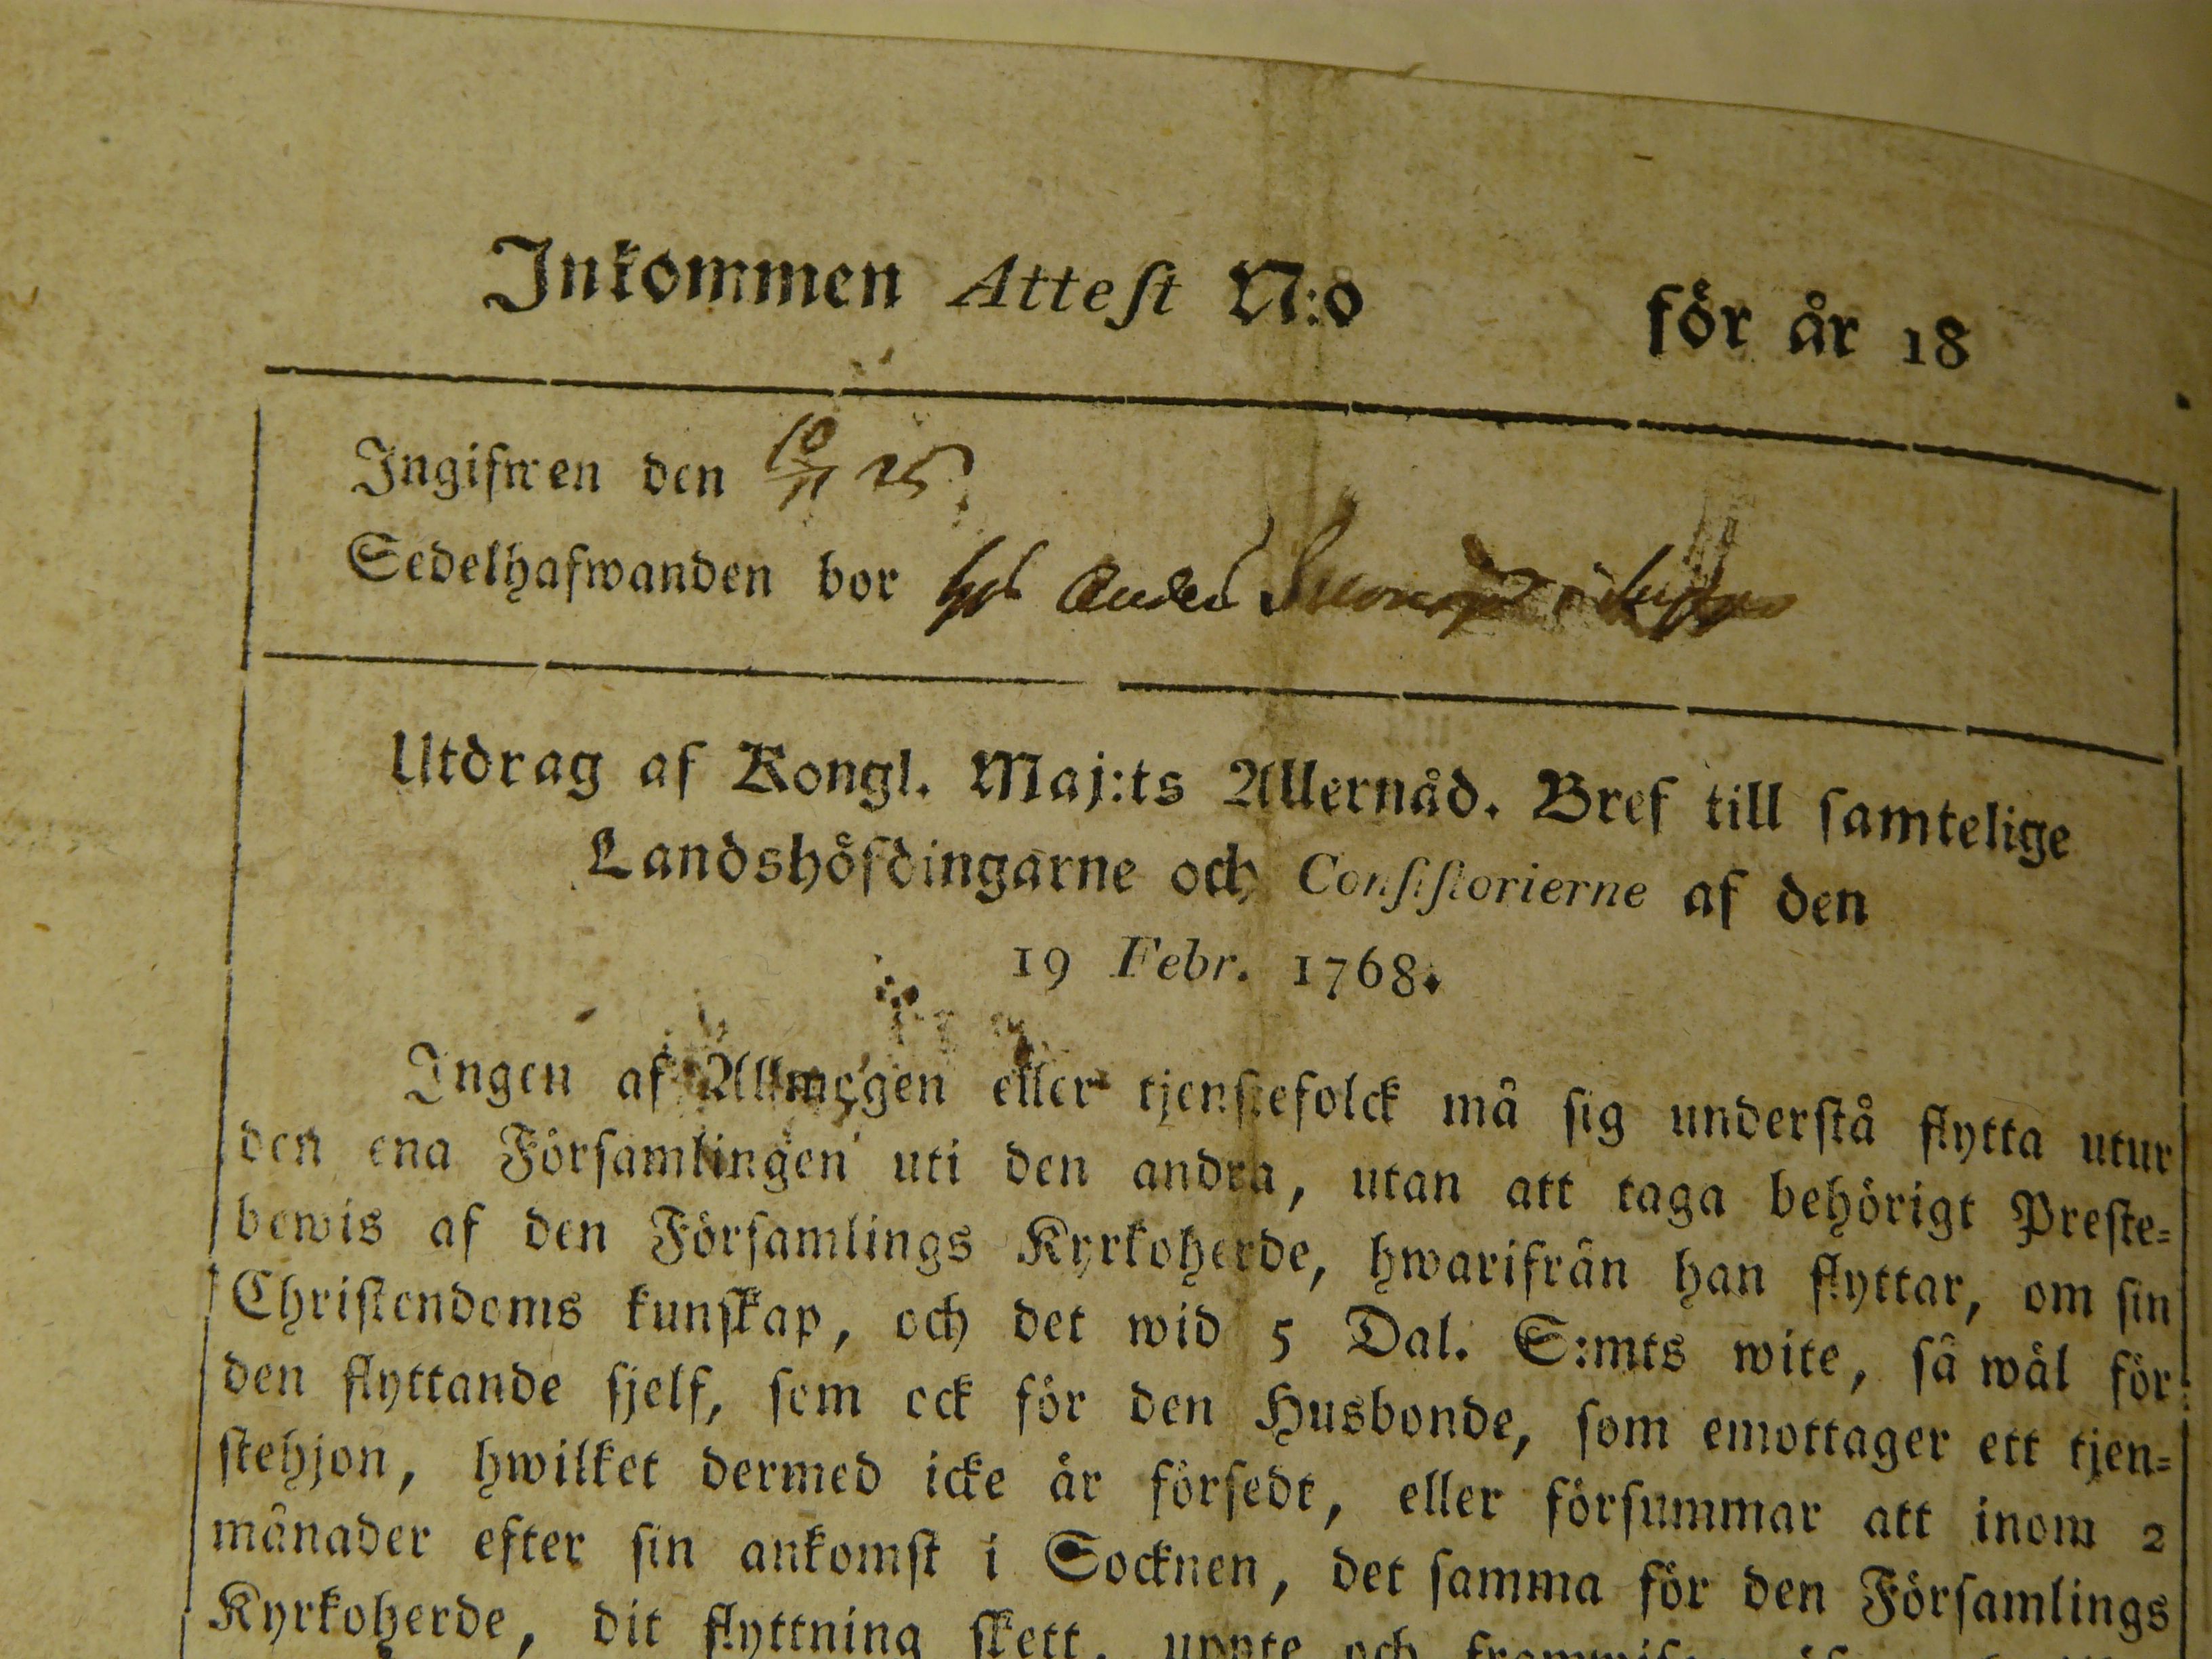 Inkommen Attest N:o för år 18
Ingifwen den 10/11 25
Sedelhafwanden bor hos Anders i
Utdrag af Kongl. Maj:ts Allernåd. Bref till samtelige
Landshöfdingarne och Consistorierne af den
19 Febr. 1768.
Ingen af Allmogen eller tjenstefolck må sig understå flytta utur
den ena Församlingen uti den andra, utan att taga behörigt Preste-
bewis af den Församlings Kyrkoherde, hwarifrån han flyttar, om sin
Christendoms kunskap, och det wid 5 Dal. S:mts wite, så wäl för
den flyttande sjelf, som ock för den Husbonde, som emottager ett tjen-
stehjon, hwilket dermed icke är försedt, eller försummar att inom 2
månader efter sin ankomst i Socknen, det samma för den Församlings
Kyrkoherde, dit flyttning skett, uppte och